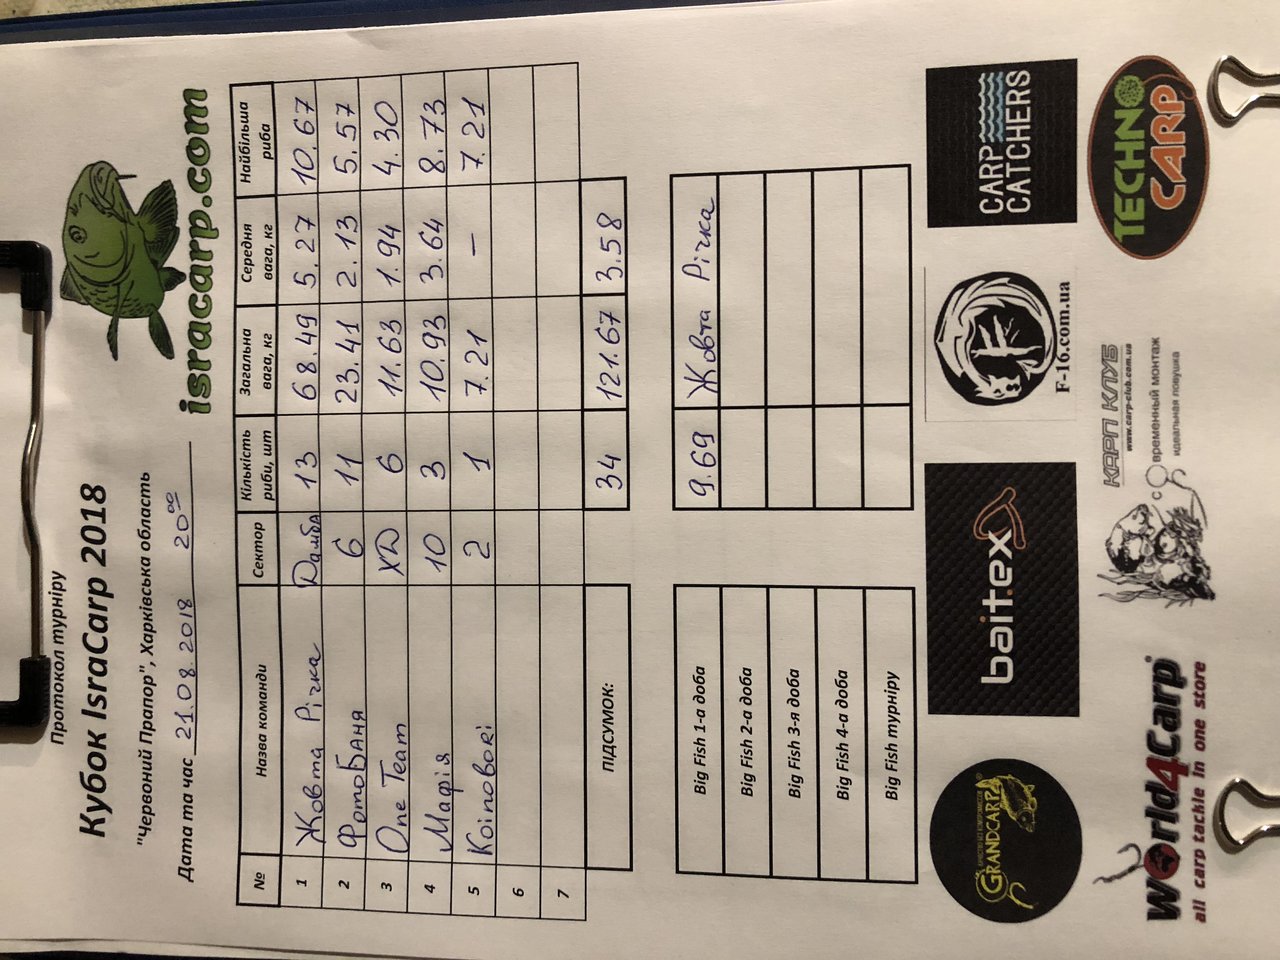 Протокол турніру
Кубок IsraCarp 2018
"Червоний Прапор", Харківська область
Дата та час 21.08.2018 20⁰⁰
isracarp.com
№ Назва команди Сектор Кількість риби, шт Загальна вага, кг Середня вага, кг Найбільша риба
1 Жовта Річка Дамба 13 68.49 5.27 10.67
2 ФотоБаня 6 11 23.41 2.13 5.57
3 One Team XD 6 11.63 1.94 4.30
4 Мафія 10 3 10.93 3.64 8.73
5 Коіповокі 2 1 7.21 – 7.21
6
7
ПІДСУМОК: 34 121.67 3.58
Big Fish 1-а доба 9.69 Жовта Річка
Big Fish 2-а доба
Big Fish 3-я доба
Big Fish 4-а доба
Big Fish турніру
КАЧЕСТВО БЕЗ КОМПРОМИССОВ
GRANDCARP
baitex
F-16.com.ua
CARP
CATCHERS
World4Carp
all carp tackle in one store
КАРП КЛУБ
www.carp-club.com.ua
современный монтаж
идеальная ловушка
TECHNO
CARP